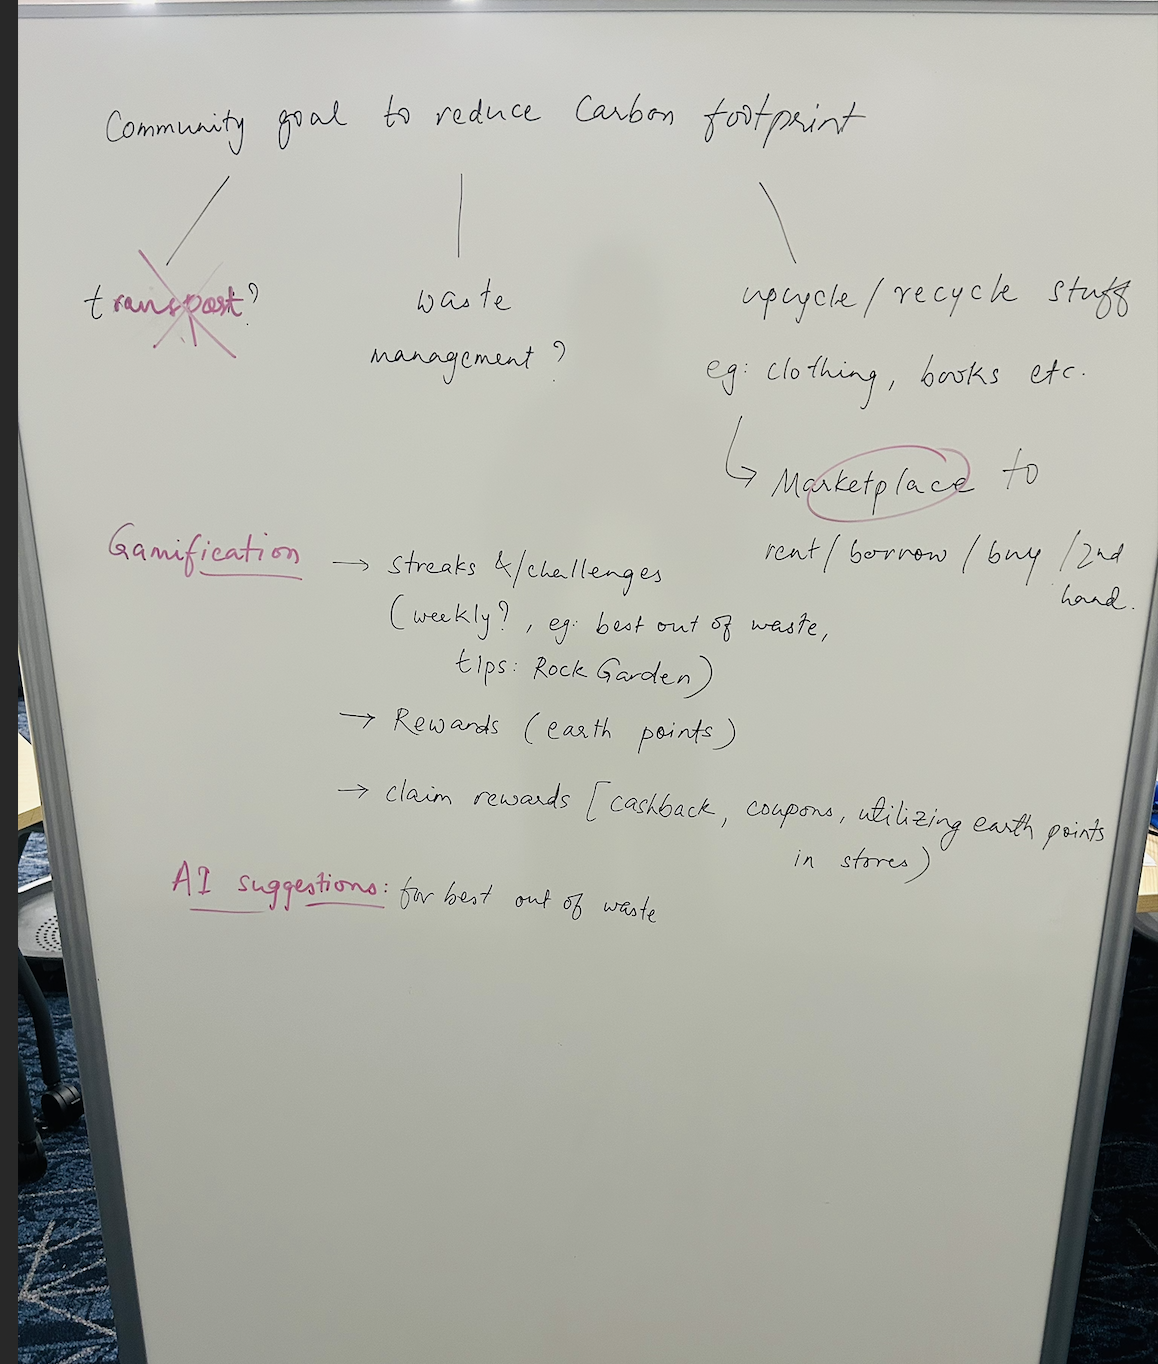 Community goal to reduce Carbon footprint
transport?
waste
management?
upcycle/recycle stuff
eg: clothing, books etc.
↳ Marketplace to
rent/borrow/buy/2nd
hand.
Gamification
→ streaks &/challenges
(weekly?, eg: best out of waste,
tips: Rock Garden)
→ Rewards (earth points)
→ claim rewards [cashback, coupons, utilizing earth points
in stores)
AI suggestions: for best out of waste